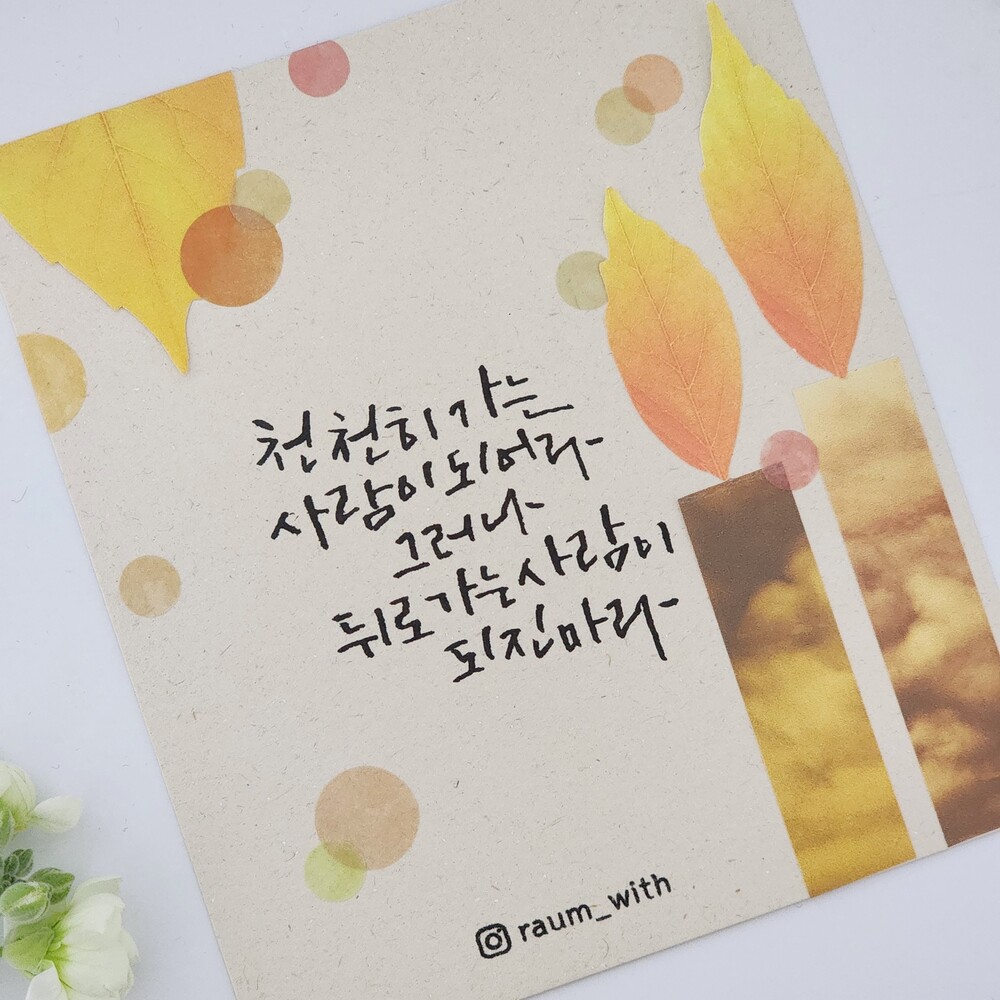 천천히 가는
사람이 되어라
그러나
뒤로 가는 사람이
되진 마라
raum_with